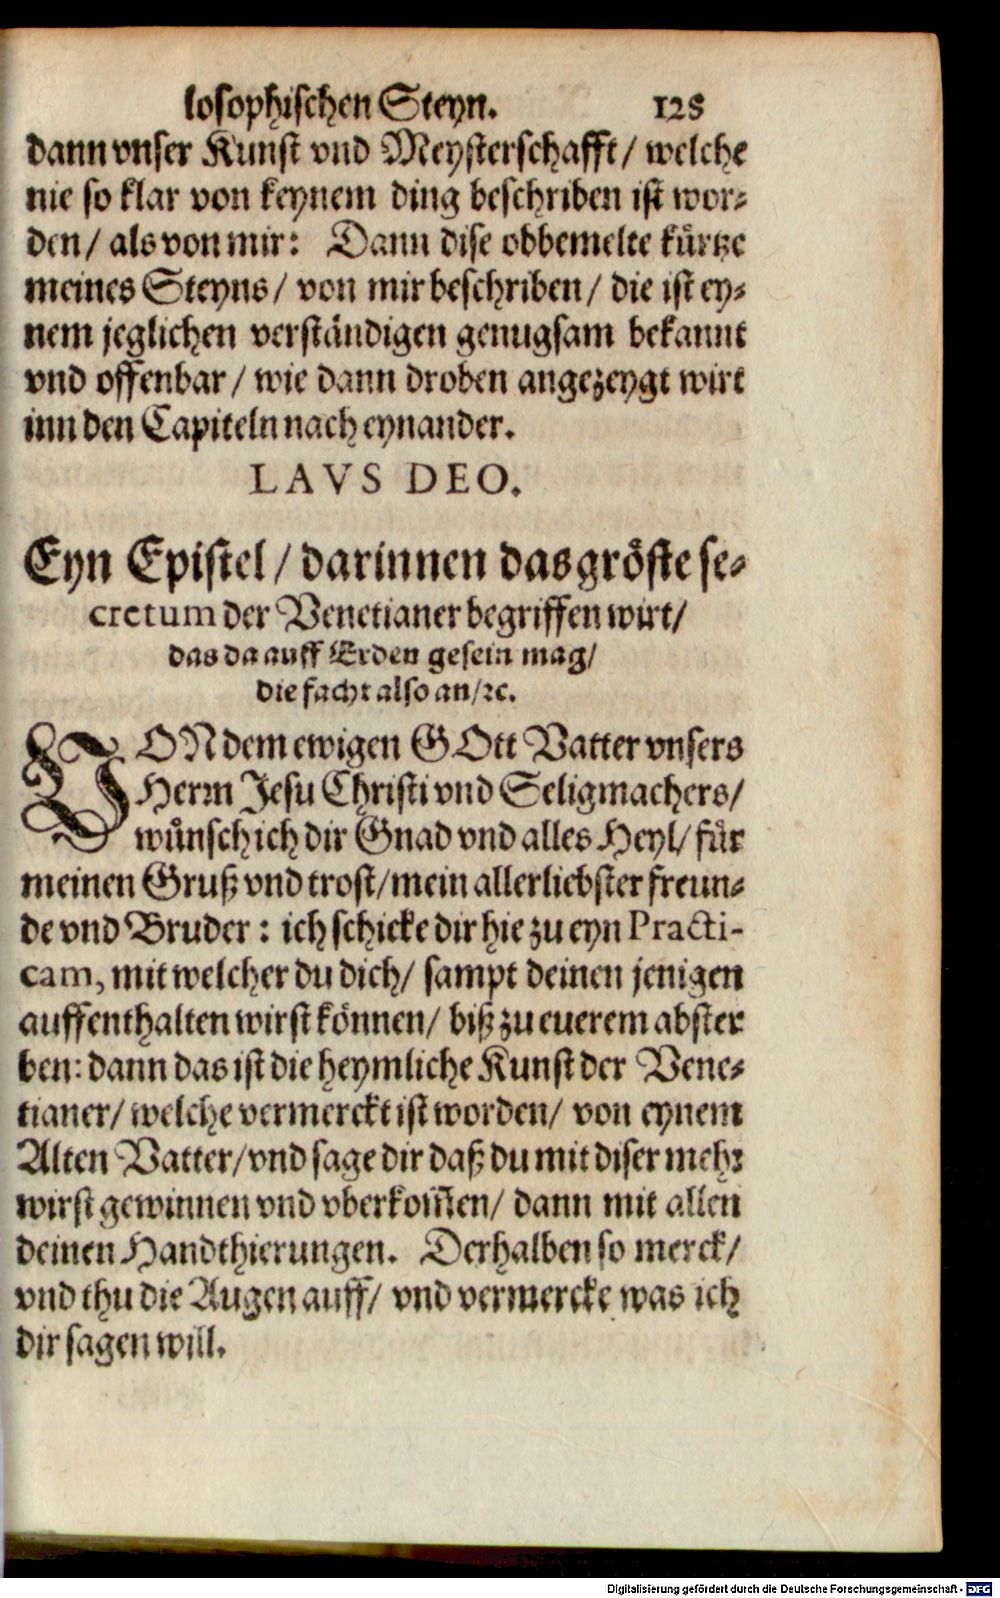 losophischen Steyn. 125
dann vnser Kunst vnd Meysterschafft/ welche
nie so klar von keynem ding beschriben ist wor-
den/ als von mir: Dann dise obbemelte kürtze
meines Steyns/ von mir beschriben/ die ist ey-
nem jeglichen verständigen genugsam bekannt
vnd offenbar/ wie dann droben angezeygt wirt
inn den Capiteln nach eynander.
LAVS DEO.
Eyn Epistel/ darinnen das gröste se-
cretum der Venetianer begriffen wirt/
das da auff Erden gesein mag/
die facht also an/ꝛc.
VON dem ewigen GOtt Vatter vnsers
Herrn Jesu Christi vnd Seligmachers/
wünsch ich dir Gnad vnd alles Heyl/ für
meinen Gruß vnd trost/ mein allerliebster freun-
de vnd Bruder: ich schicke dir hie zu eyn Practi-
cam, mit welcher du dich/ sampt deinen jenigen
auffenthalten wirst können/ biß zu euerem abster
ben: dann das ist die heymliche Kunst der Vene-
tianer/ welche vermerckt ist worden/ von eynem
Alten Vatter/ vnd sage dir daß du mit diser mehr
wirst gewinnen vnd vberkom̃en/ dann mit allen
deinen Handthierungen. Derhalben so merck/
vnd thu die Augen auff/ vnd vermercke was ich
dir sagen will.
Digitalisierung gefördert durch die Deutsche Forschungsgemeinschaft - DFG